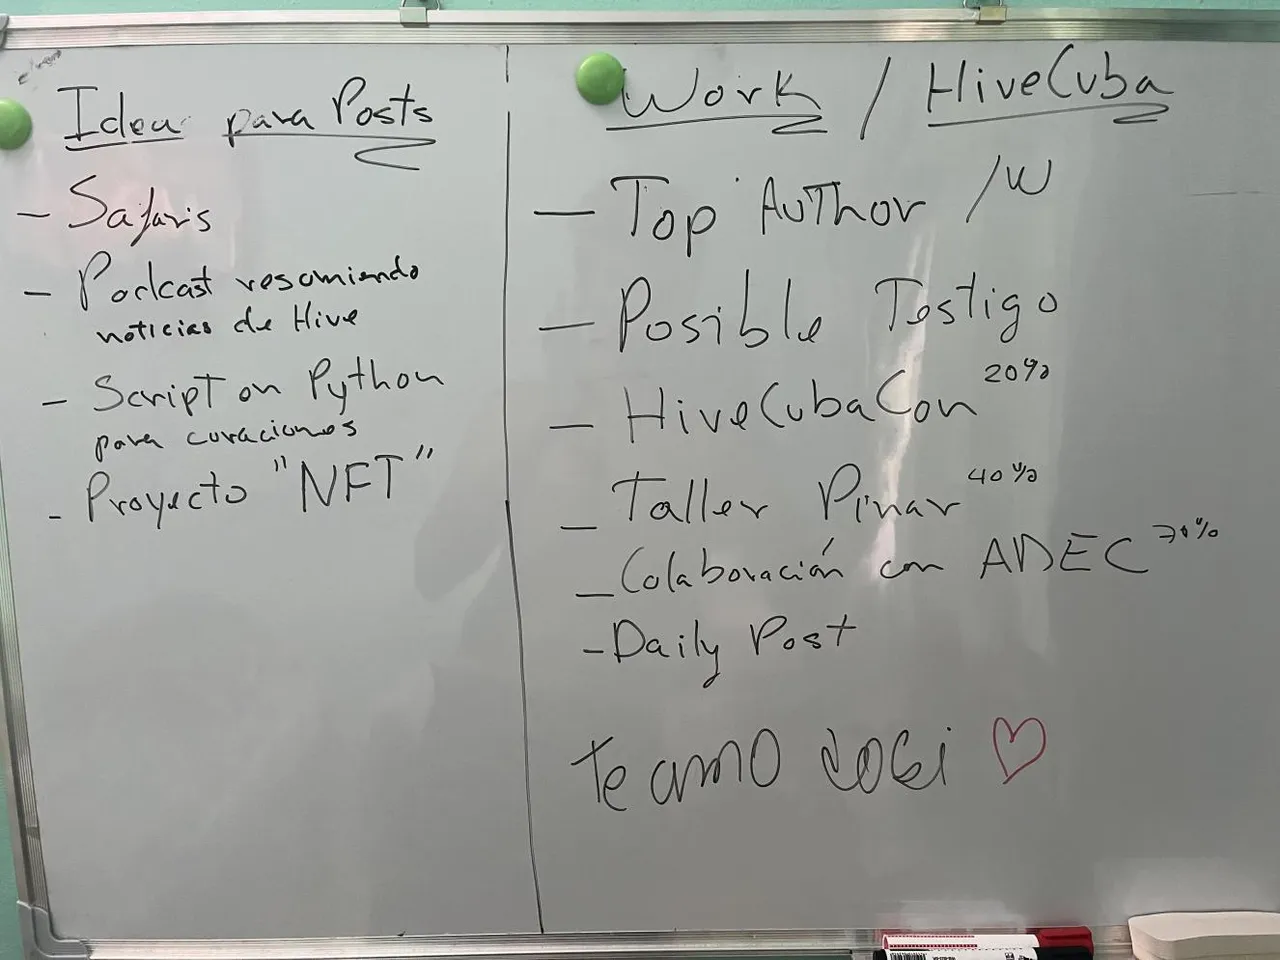 Idea para Posts
- Safaris
- Podcast resumiendo
noticias de Hive
- Script en Python
para curaciones
- Proyecto "NFT"
Work / HiveCuba
- Top Author /W
- Posible Testigo
- HiveCubaCon 20%
- Taller Pinar 40%
- Colaboración con ADEC 70%
- Daily Post
Te amo